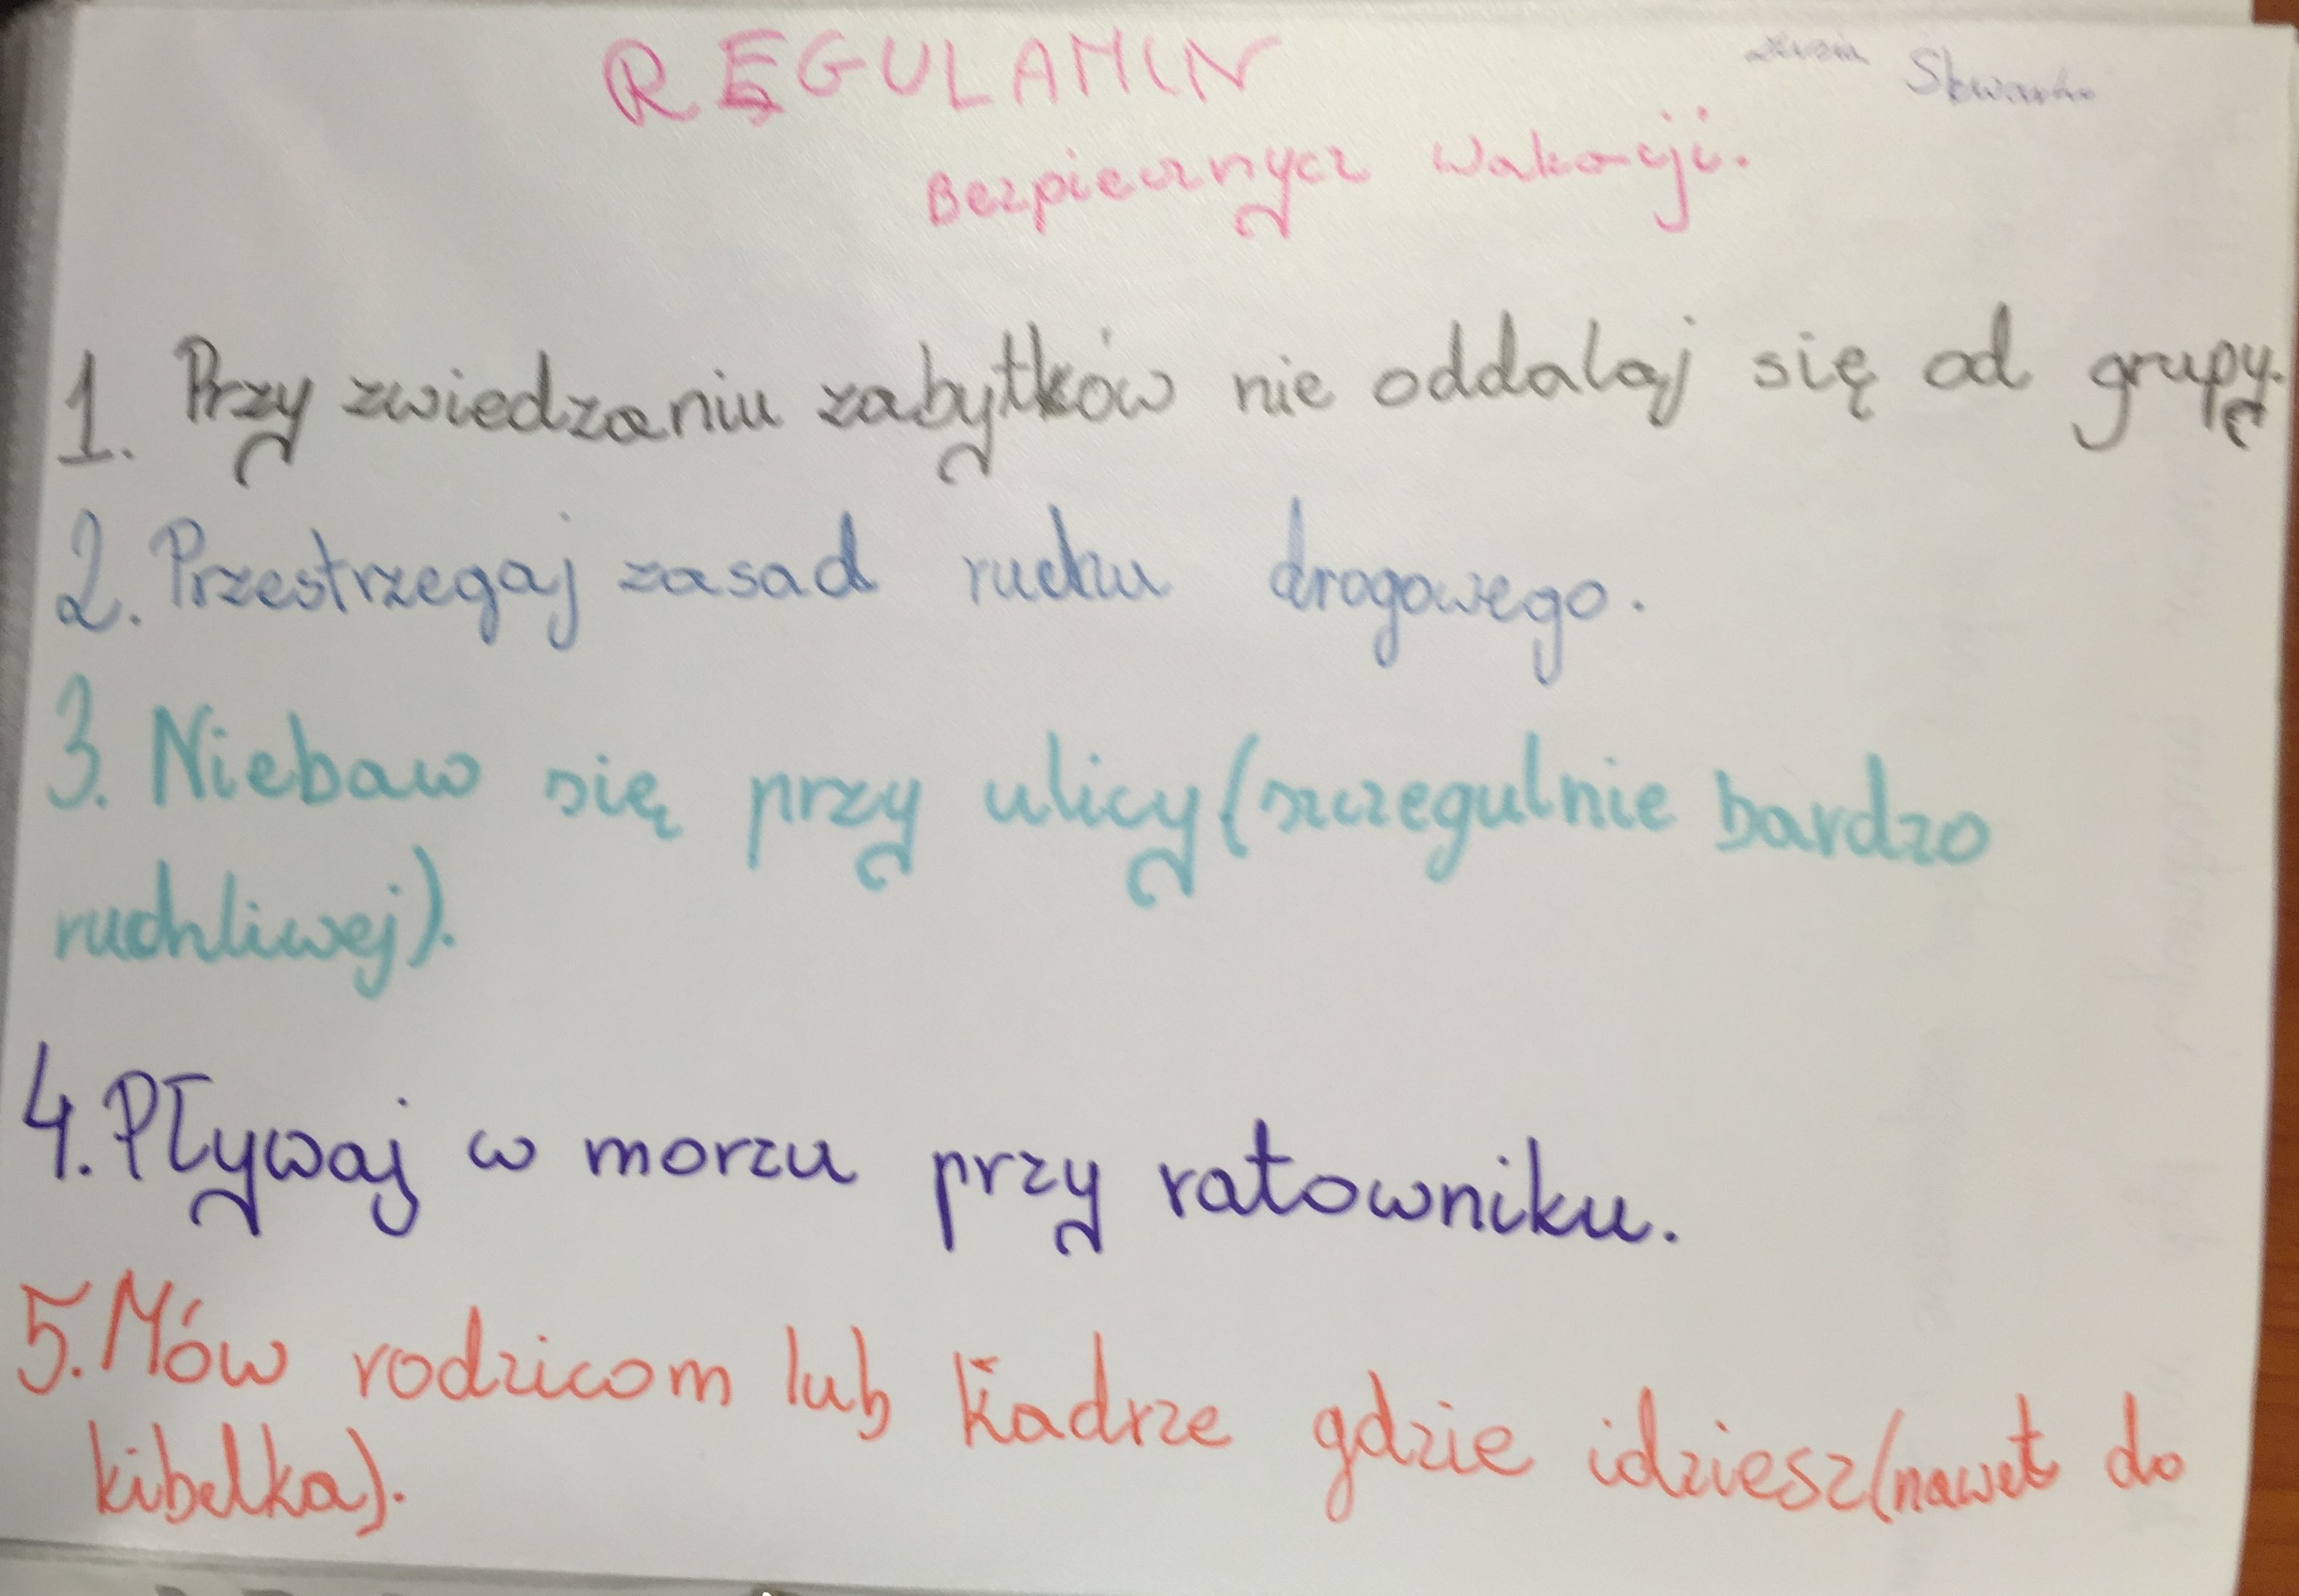 REGULAMIN
Bezpiecznycz wakacji.
1. Przy zwiedzaniu zabytków nie oddalaj się od grupy.
2. Przestrzegaj zasad ruchu drogowego.
3. Niebaw się przy ulicy (szczegulnie bardzo
ruchliwej).
4. Pływaj w morzu przy ratowniku.
5. Mów rodzicom lub kadrze gdzie idziesz (nawet do
kibelka).